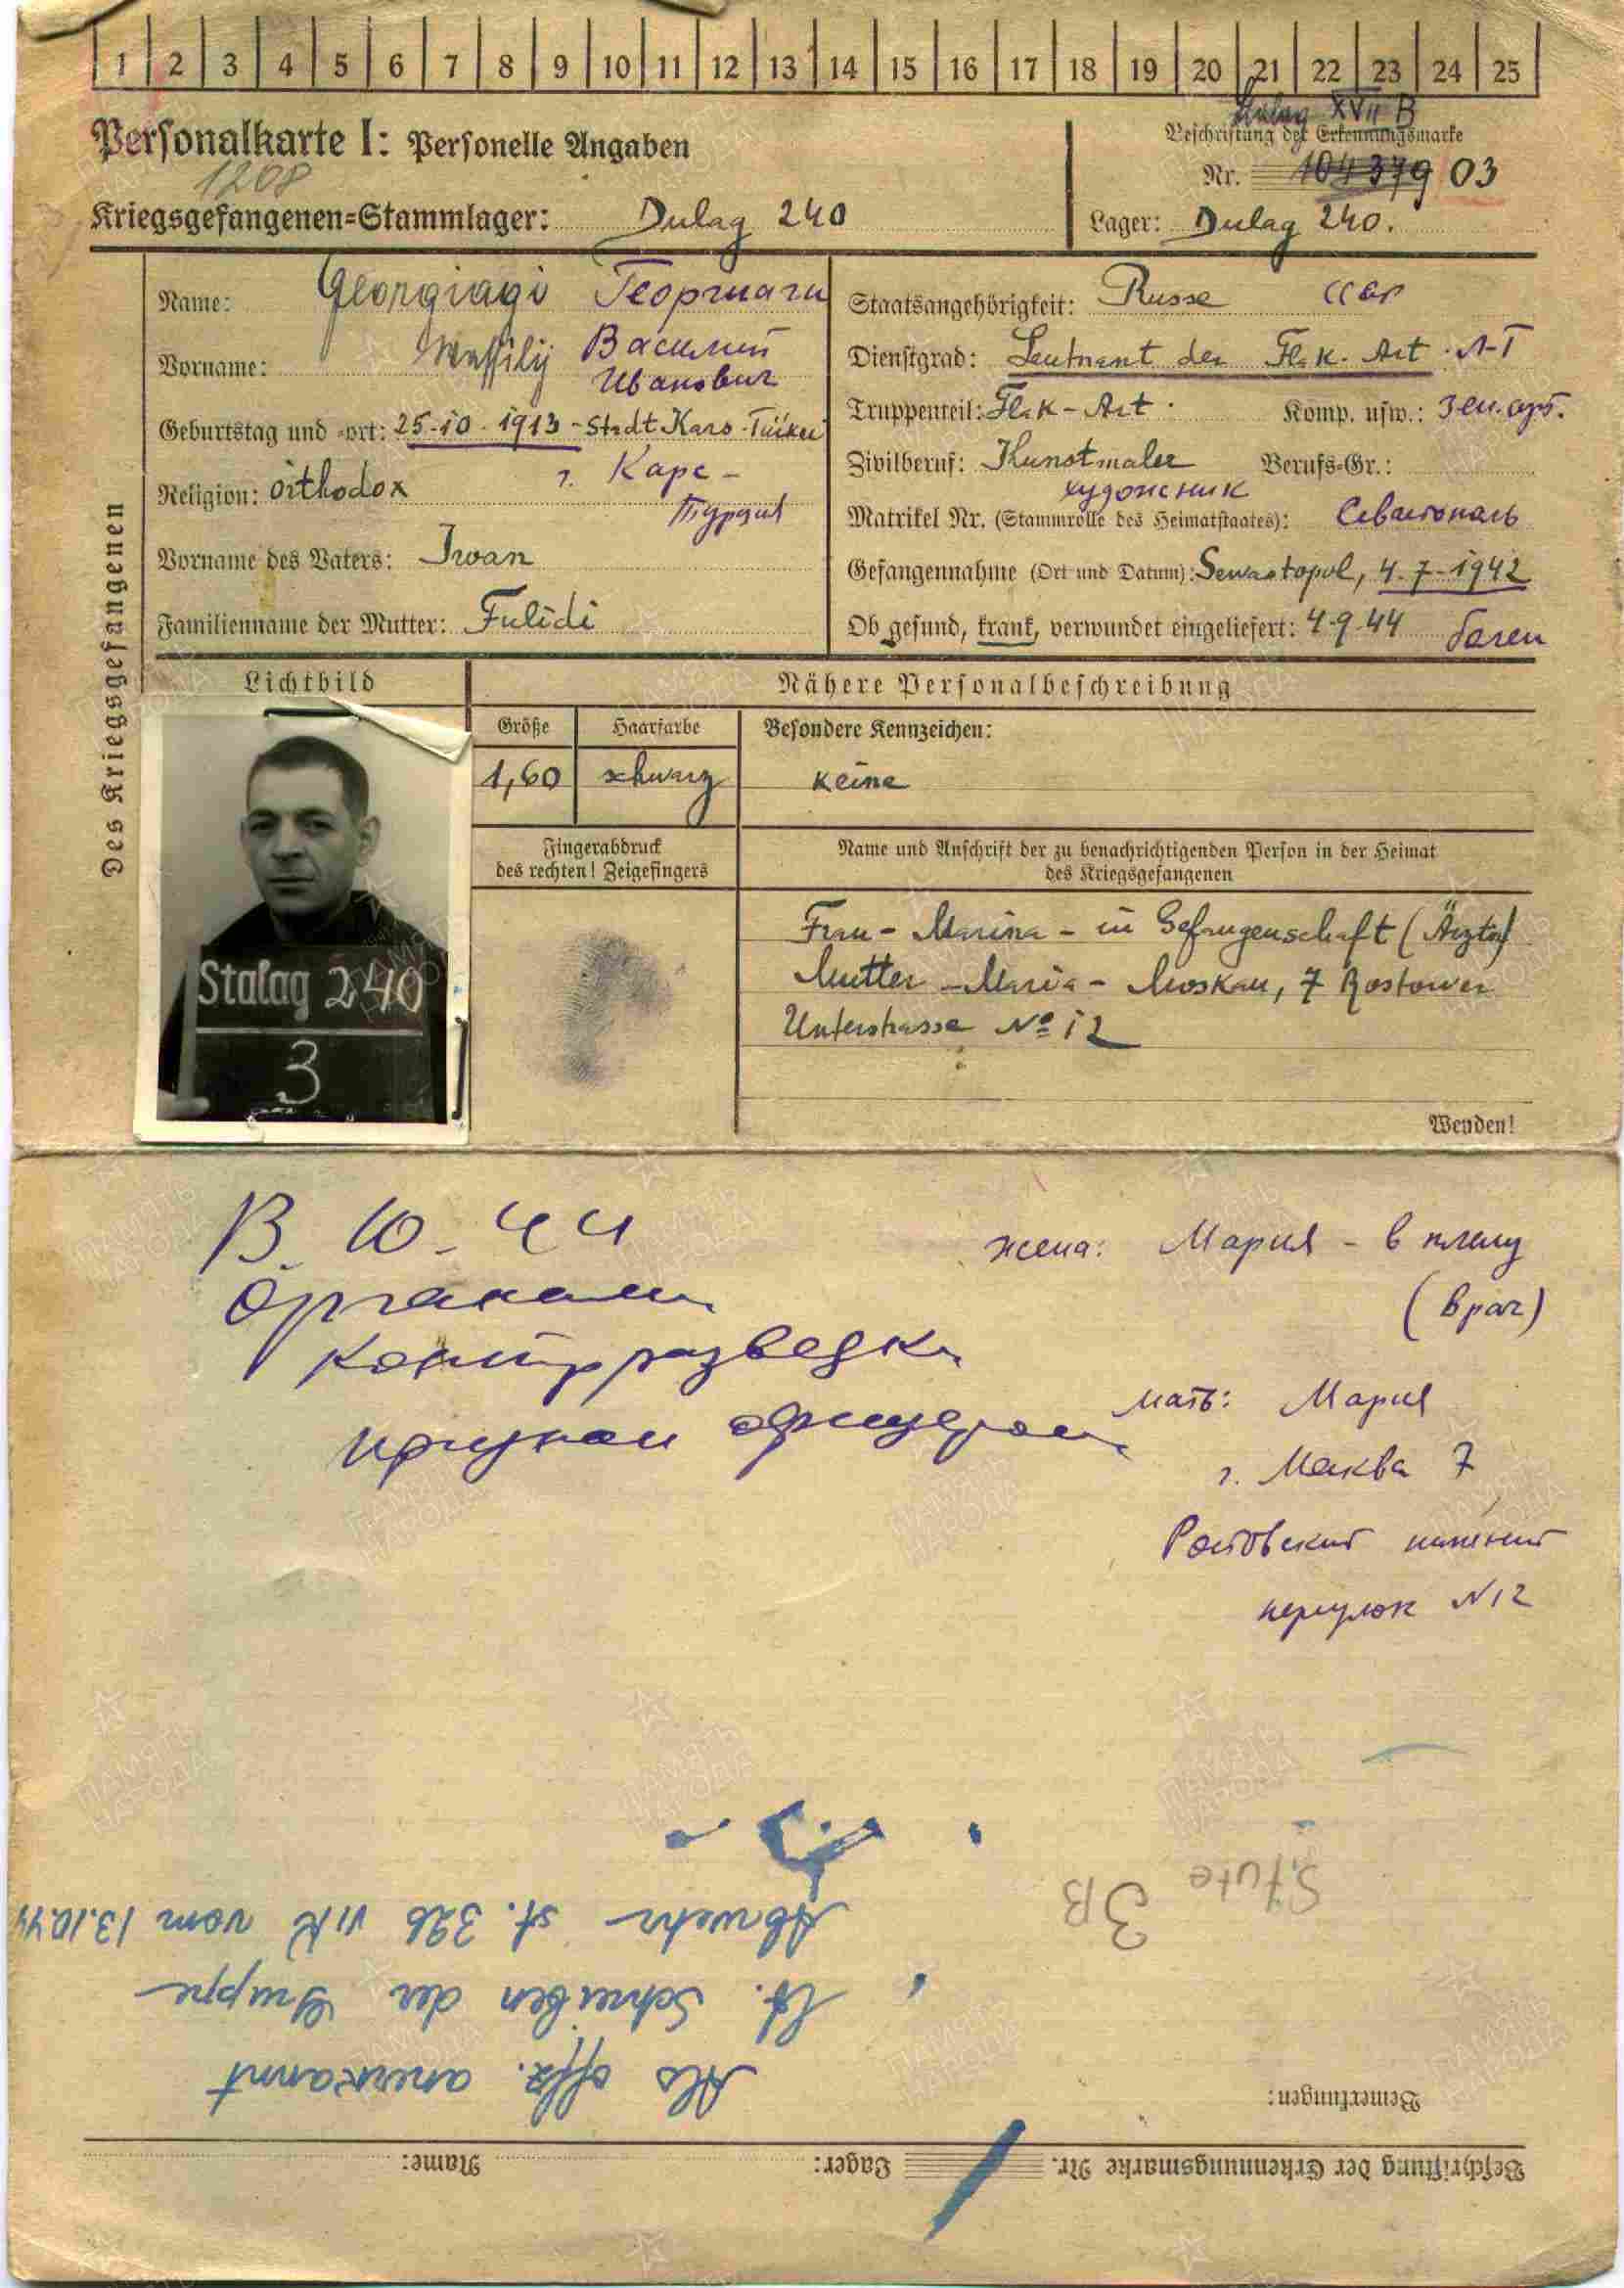 1 2 3 4 5 6 7 8 9 10 11 12 13 14 15 16 17 18 19 20 21 22 23 24 25
Personalkarte I: Personelle Angaben
1208
Kriegsgefangenen=Stammlager: Dulag 240
Stalag XVII B
Beschriftung der Erkennungsmarke
Nr. 104379 03
Lager: Dulag 240.
Des Kriegsgefangenen
Name: Georgiagi Георгиаги
Vorname: Wassilij Василий
Иванович
Geburtstag und -ort: 25-10-1913 - Stadt Kars-Türkei
г. Карс -
Religion: orthodox
Турция
Vorname des Vaters: Iwan
Familienname der Mutter: Fulidi
Staatsangehörigkeit: Russe СССР
Dienstgrad: Leutnant der Flak-Art. Л-Т
Truppenteil: Flak-Art. Komp. usw.: Зен. арт.
Zivilberuf: Kunstmaler Berufs=Gr.:
художник
Matrikel Nr. (Stammrolle des Heimatstaates): Севастополь
Gefangennahme (Ort und Datum): Sewastopol, 4-7-1942
Ob gesund, krank, verwundet eingeliefert: 4-9-44 болен
Lichtbild
Nähere Personalbeschreibung
Größe Haarfarbe Besondere Kennzeichen:
1,60 schwarz keine
Fingerabdruck
des rechten! Zeigefingers
Name und Anschrift der zu benachrichtigenden Person in der Heimat
des Kriegsgefangenen
Frau - Marina - in Gefangenschaft (Ärztin)
Mutter - Maria - Moskau, 7 Rostower
Unterstrasse № 12
Stalag 240
3
Wenden!
В. 10-44
Органами
контрразведки
признан офицером
жена: Мария - в плену
(врач)
мать: Мария
г. Москва 7
Ростовский нижний
переулок N12
Beschriftung der Erkennungsmarke Nr. Lager: Name:
Bemerkungen:
Als offz. anerkannt
lt. Schreiben der Gruppe
Abwehr st. 326 VI K vom 13.10.44
Stute
3B
ПАМЯТЬ НАРОДА